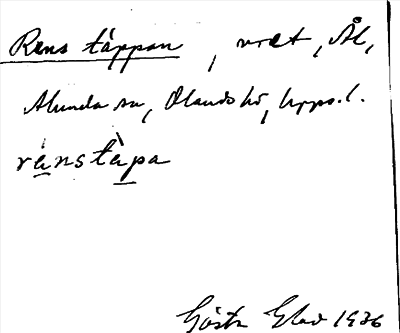 Rens täppan, vret, Ål,
Alunda sn, Olands hd, Upps. l.
ränstàpa
Gösta Elav 1936